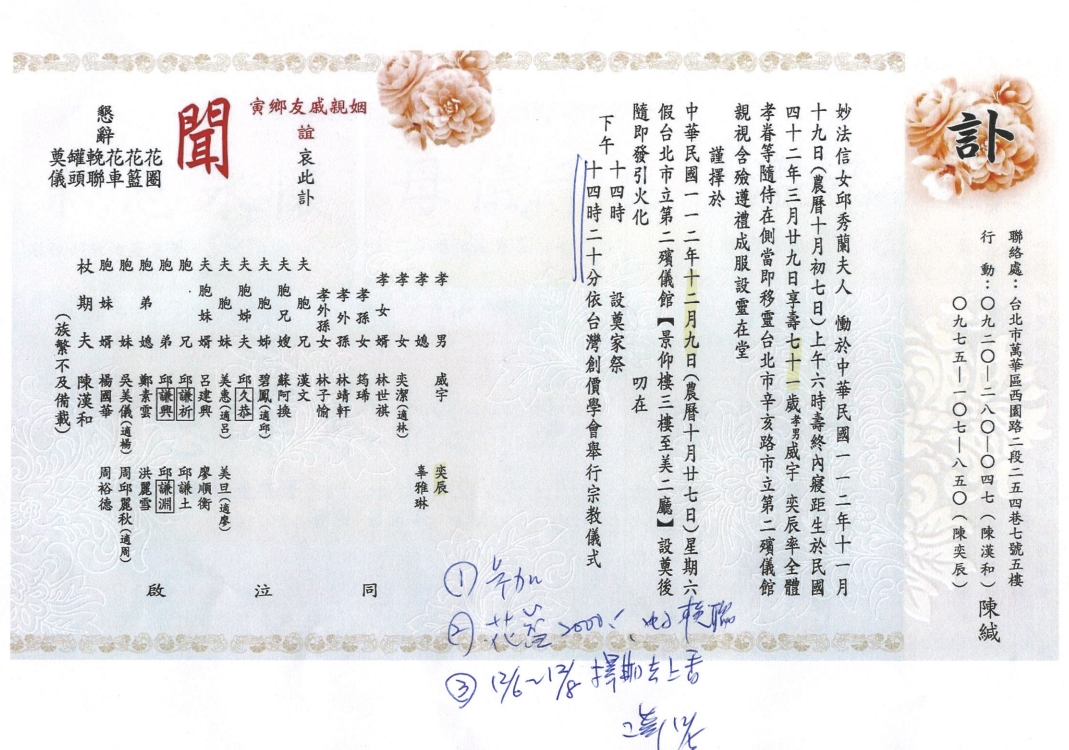 訃
聯絡處：台北市萬華區西園路二段二五四巷七號五樓
行動：〇九二〇—二八〇—〇四七（陳漢和）
〇九七五—一〇七—八五〇（陳奕辰）
陳緘
妙法信女邱秀蘭夫人 慟於中華民國一一二年十一月
十九日（農曆十月初七日）上午六時壽終內寢距生於民國
四十二年三月廿九日享壽七十一歲孝男威宇 奕辰率全體
孝眷等隨侍在側當即移靈台北市辛亥路市立第二殯儀館
親視含殮遵禮成服設靈在堂
謹擇於
中華民國一一二年十二月九日（農曆十月廿七日）星期六
假台北市立第二殯儀館【景仰樓三樓至美二廳】設奠後
隨即發引火化
十四時 設奠家祭 叨在
下午
十四時二十分依台灣創價學會舉行宗教儀式
寅鄉友戚親姻
誼哀此訃
聞
懇辭
奠儀
罐頭
輓聯
花車
花籃
花圈
孝男 威宇 奕辰
孝媳 辜雅琳
孝女 奕潔（適林）
孝女婿 林世祺
孝孫 筠琋
孝外孫 林靖軒
孝外孫女 林子愉
夫胞兄 漢文
夫胞兄嫂 蘇阿換
夫胞姊 碧鳳（適邱）
夫胞姊夫 邱久恭
夫胞妹 美惠（適呂） 美旦（適廖）
夫胞妹婿 呂建興 廖順衡
胞兄 邱謙祈 邱謙土
胞弟 邱謙興 邱謙淵
胞弟媳 鄭素雲 洪麗雪
胞妹 吳美儀（適楊） 周邱麗秋（適周）
胞妹婿 楊國華 周裕德
杖期夫 陳漢和
（族繁不及備載）
同泣啟
① 參加
② 花籃 2000
輓聯
③ 12/6～12/8 擇期去上香